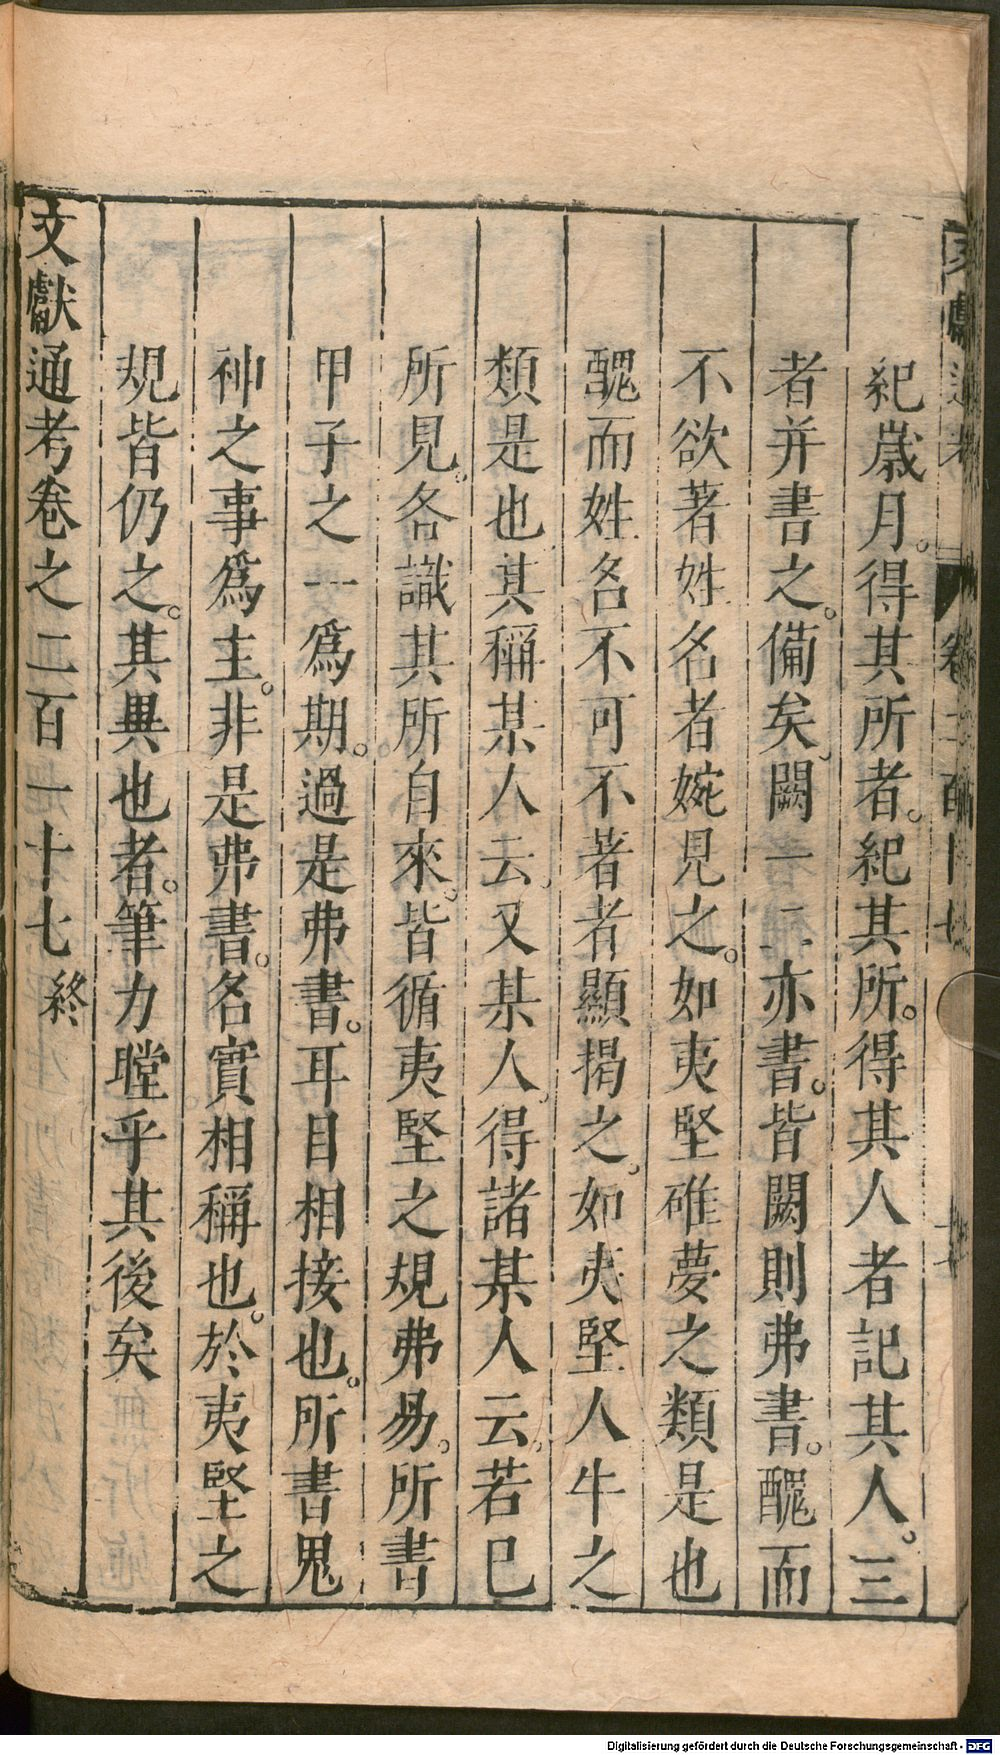 紀歲月。得其所者。紀其所。得其人者記其人。三
者并書之。備矣。闕一二亦書。皆闕則弗書。醜而
不欲著姓名者婉見之。如夷堅碓夢之類是也
醜而姓名不可不著者顯揭之。如夷堅人牛之
類是也其稱某人云。又某人。得諸某人云。若已
所見。各識其所自來。皆循夷堅之規弗易。所書
甲子之一爲期。過是弗書。耳目相接也。所書鬼
神之事爲主。非是弗書。名實相稱也。於夷堅之
規皆仍之。其異也者。筆力瞠乎其後矣
文獻通考卷之二百一十七 終
Digitalisierung gefördert durch die Deutsche Forschungsgemeinschaft - DFG